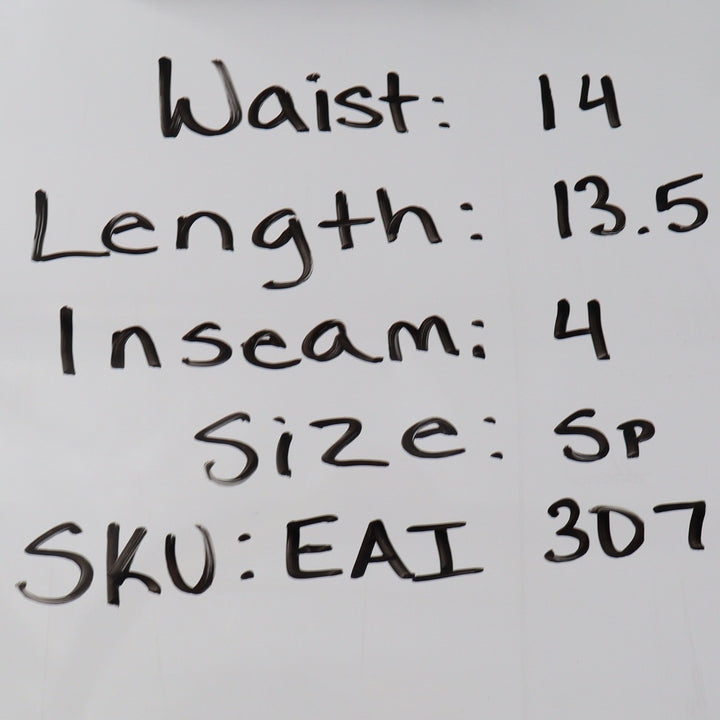 Waist: 14
Length: 13.5
Inseam: 4
Size: SP
SKU: EAI 307